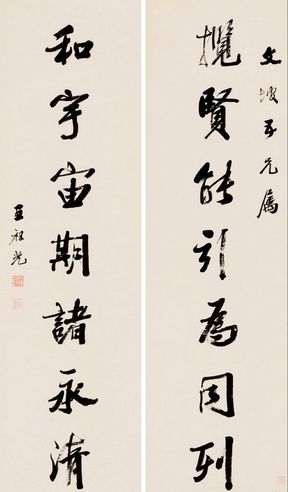 文坡五兄屬
攬賢能引為同列
和宇宙期諸永清
王祖光